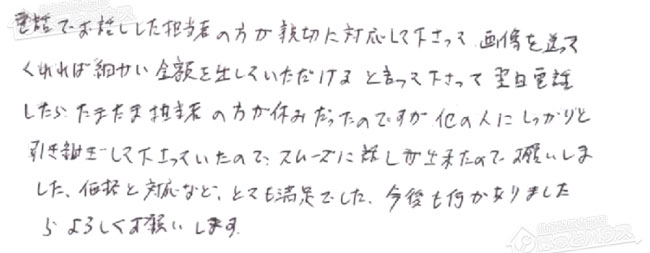 電話でお話しした担当者の方が親切に対応して下さって 画像を送って
くれれば細かい金額を出していただけると言って下さって 翌日電話
したら たまたま担当者の方が休みだったのですが 他の人にしっかりと
引き継ぎして下さっていたので、スムーズに話しが出来たので お願いしま
した、価格と対応など、とても満足でした、今後も何かありました
ら よろしくお願いします。